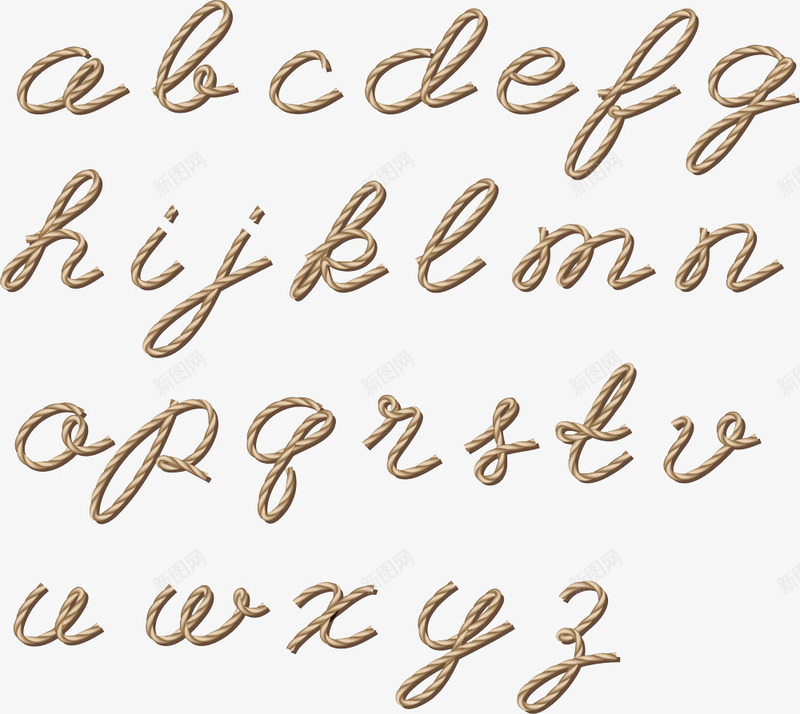 a b c d e f g
h i j k l m n
o p q r s t v
u w x y z